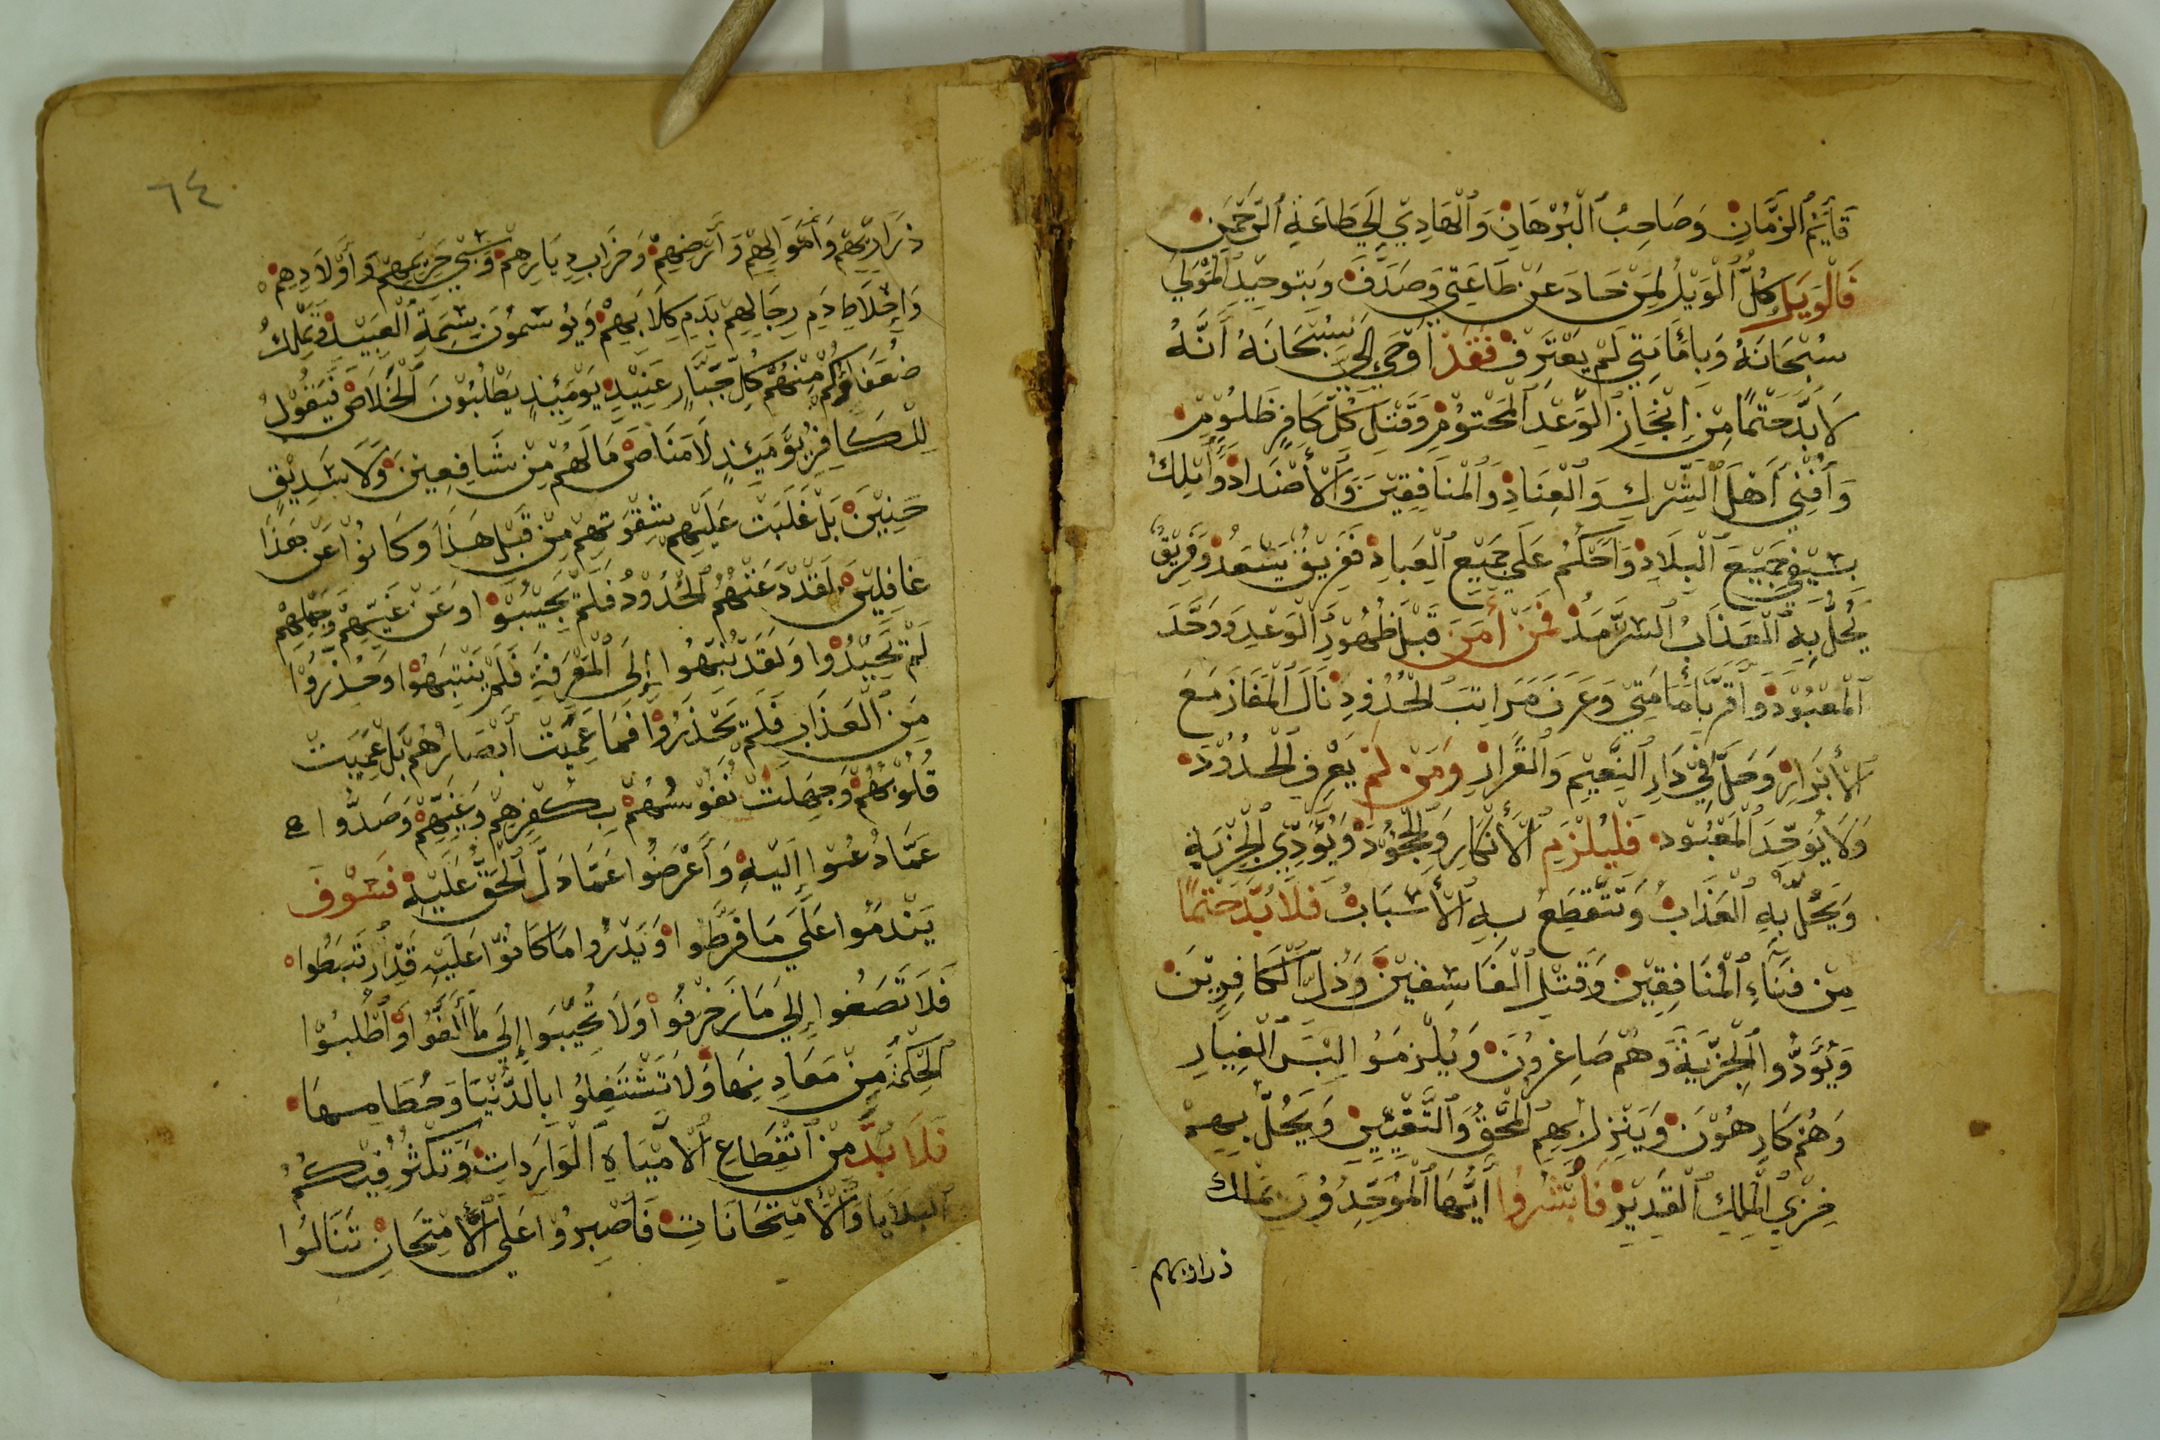 قَايَمُ ٱلزَّمَانِ وَصَاحِبُ ٱلْبُرْهَانِ وَٱلْهَادِيْ إِلَي طَاعَةِ ٱلرَّحْمٰنِ
فَالْوَيْلُ كُلُّ ٱلْوَيْلُ لِمَنْ حَادَ عَنْ طَاعَتِي وَصَدَفَ وَبِتَوحِيْدِ ٱلْمَوْلَي
سُبْحَانَهُ وَبِاَمَامَتِي لَمْ يَعْتَرِفْ فَقَدْ اَوْحَي إِلَيَّ سُبْحَانَهُ أَنَّهُ
لَابُدَّ حَتْمًا مِنْ إِنْجَازِ ٱلْوَعْدِ ٱلْمَحْتُوْمِ وَقَتْلِ كُلِّ كَافِرٍ ظَلُوْمٍ
وَاُفْنِي أَهْلَ ٱلشِّرْكِ وَٱلْعِنَادِ وَٱلْمُنَافِقِيْنَ وَٱلْأَضْدَادِ وَأَمْلِكُ
بِسَيْفِي جَمِيْعَ ٱلْبِلَادِ وَاَحْكُمُ عَلَي جَمِيْعِ ٱلْعِبَادِ فَفَرِيْقٌ يَسْعَدُ وَفَرِيْقٌ
يَحُلُّ بِهِ ٱلْعَذَابُ ٱلسَّرْمَدُ فَمَنْ أَمَنَ قَبْلَ ظُهُوْرِ ٱلْوَعْدِ وَوَحَّدَ
ٱلْمَعْبُوْدَ وَأَقَرَّ بِأَمَامَتِيْ وَعَرَفَ مَرَاتِبَ ٱلْحُدُوْدِ نَالَ ٱلْمَفَازَ مَعَ
ٱلْأَبْرَارِ وَحَلَّ فِيْ دَارِ ٱلنَّعِيْمِ وَٱلْقَرَارِ وَمَنْ لَمْ يَعْرِفِ ٱلْحُدُوْدَ
وَلَا يُوَحِّدَ ٱلْمَعْبُوْدَ فَلْيُلْزَمِ ٱلْأَنْكَارِ وَٱلْجُحُوْدَ وَيُؤَدِّي ٱلْجِزْيَةِ
وَيَحُلُّ بِهِ ٱلْعَذَابُ وَتَتَقَطَّعُ بِهِ ٱلْأَسْبَابُ فَلَابُدَّ حَتْمًا
مِنْ فَنَاءِ ٱلْمُنَافِقِيْنَ وَقَتْلِ ٱلْفَاسِقِيْنَ وَذُلِّ ٱلْكَافِرِيْنَ
وَيُؤَدُّوا ٱلْجِزْيَةَ وَهُمْ صَاغِرُوْنَ وَيُلْزَمُوْا لِبْسَ ٱلْغِيَارِ
وَهُمْ كَارِهُوْنَ وَيَنْزِلُ بِهِمِ ٱلْمَحْقُ وَٱلتَّغْيِيْرُ وَيَحُلُّ بِهِمْ
خِزْيُ ٱلْمَلِكِ ٱلْقَدِيْرِ فَأَبْشِرُوا أَيُّهَا ٱلْمُوَحِّدُوْنَ بِمُلْك
ذراريهم
٦٤
ذَرَارِيْهِمْ وَأَمْوَالِهِمْ وَأَرْضِهِمْ وَخَرَابِ دِيَارِهِمْ وَسَبْيِ حَرِيْمِهِمْ وَأَوْلَادِهِمْ
وَإِخْلَاطِ دَمِ رِجَالِهِمْ بِدَمِ كِلَابِهِمْ وَيُوْسَمُوْنَ بِسِمَةِ ٱلْعَبِيْدْ وَتَمْلِكُ
ضُعَفَاؤُكُمْ مِنْهُمْ كُلِّ جَبَّارٍ عَنِيْدٍ يَوْمَئِذٍ يَطْلُبُوْنَ ٱلْخَلَاصَ فَيَقُوْلُ
لِلْكَافِرِ يَوْمَئِذٍ لَامَنَاصَ مَا لَهُمْ مِنْ شَافِعِيْنَ وَلَا سَدِيْقٍ
حَنِيْنَ بَلْ غَلَبَتْ عَلَيْهِمْ شِقْوَتِهِمْ مِنْ قَبْلِ هَذَا وَكَانُوْا عَنْ هَذَا
غَافِلِيْنَ لَقَدْ دَعَتْهُمُ ٱلْحُدُوْدُ فَلَمْ يَجِيْبُوْا وَعَنْ غَيِّهِمْ وَجَهْلِهِمْ
لَمْ يَحِيْدُوا وَلَقَدْ نُبِّهُوا إِلَى ٱلْمَعْرِفَةِ فَلَمْ يَنْتَبِهُوْا وَحُذِّرُوْا
مِنَ ٱلْعَذَابِ فَلَمْ يَحْذَرُوْا فَمَا عَمِيَتْ أَبْصَارُهُمْ بَلْ عَمِيَتْ
قُلُوْبُهُمْ وَجَهِلَتْ نُفُوْسُهُمْ بِكُفْرِهِمْ وَغَيِّهِمْ وَصَدُّوا
عَمَّا دُعُوْا إِلَيْهِ وَأَعْرَضُوْا عَمَّا دَلَّ ٱلْحَقُّ عَلَيْهِ فَسَوْفَ
يَنْدَمُوْا عَلَي مَا فَرَّطُوا وَيَدْرُوا مَا كَانُوْا عَلَيْهِ قَدِ ٱرْتَبَطُوا
فَلَا تَصْغُوا إِلَي مَا زَخْرَفُوْا وَلَا تُجِيْبُوا إِلَي مَا أَلَّفُوْا وَٱطْلُبُوْا
ٱلْحِكْمَةَ مِنْ مَعَادِنِهَا وَلَا تَشْتَغِلُوْا بِالدُّنْيَا وَحُطَامِهَا
فَلَابُدَّ مِنْ ٱنْقِطَاعِ ٱلْأَمْيَاهِ ٱلْوَارِدَاتِ وَتَكْثُرُ فِيْكُمُ
ٱلْبَلَايَا وَٱلْأَمْتِحَانَاتِ فَاَصْبِرُوْا عَلَى ٱلْأَمْتِحَانِ تَنَالُوْا